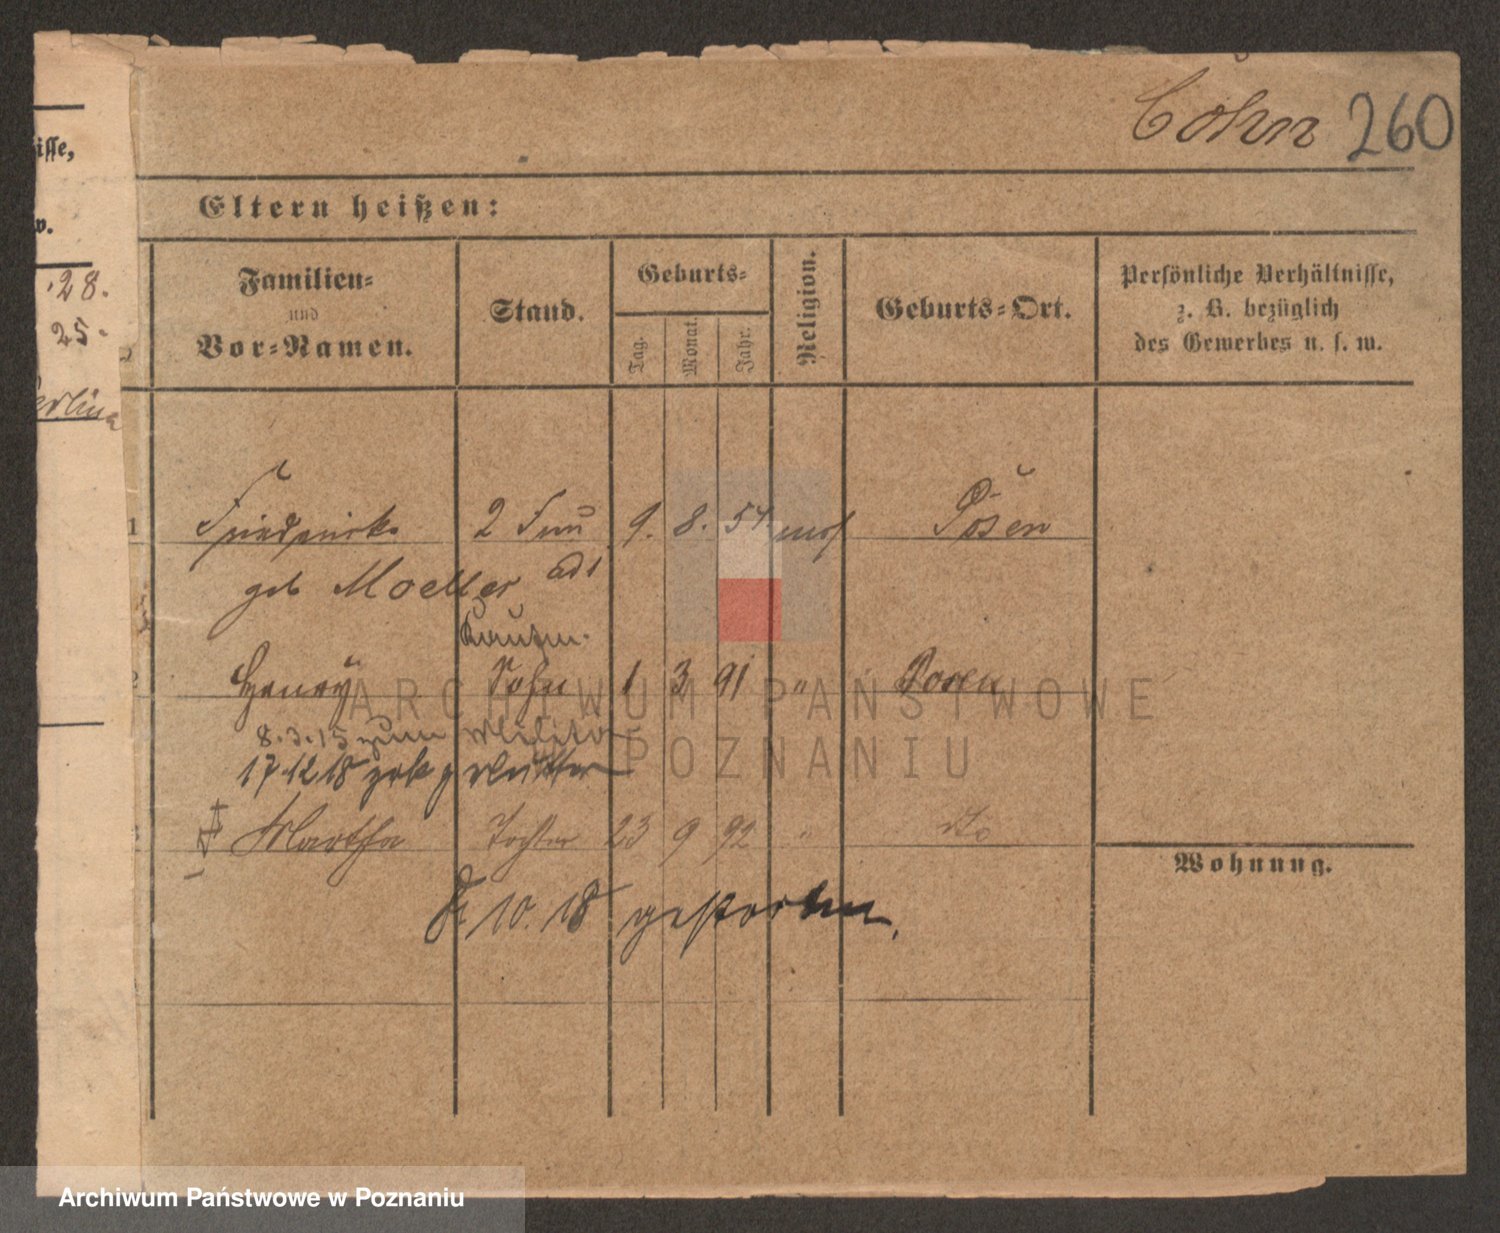 Cohn 260
isse,
w.
28.
25.
Eltern heißen:
Familien-
und
Vor-Namen.
Stand.
Geburts-
Tag.
Monat.
Jahr.
Religion.
Geburts-Ort.
Persönliche Verhältnisse,
z. B. bezüglich
des Gewerbes u. s. w.
1 Friederike 2 Frau 9. 8. 54 mos Posen
geb Moeller
Kaufm.
Henry Sohn 1 3 91 " Posen
8.3.15 zum Militär
17.12.18
Martha Tochter 23 9 92 " do
10. 18 gestorben.
Wohnung.
ARCHIWUM PAŃSTWOWE
W POZNANIU
Archiwum Państwowe w Poznaniu